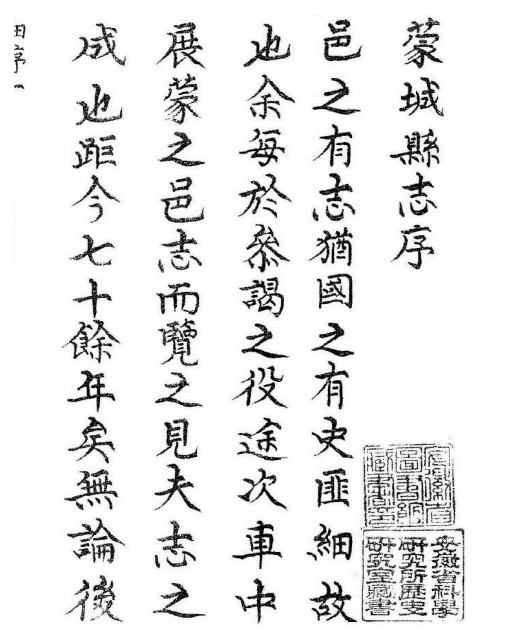 蒙城縣志序
邑之有志猶國之有史匪細故
也余每於叅謁之役途次車中
展蒙之邑志而覽之見夫志之
成也距今七十餘年矣無論後
安徽省科學
研究所歷史
研究室藏書